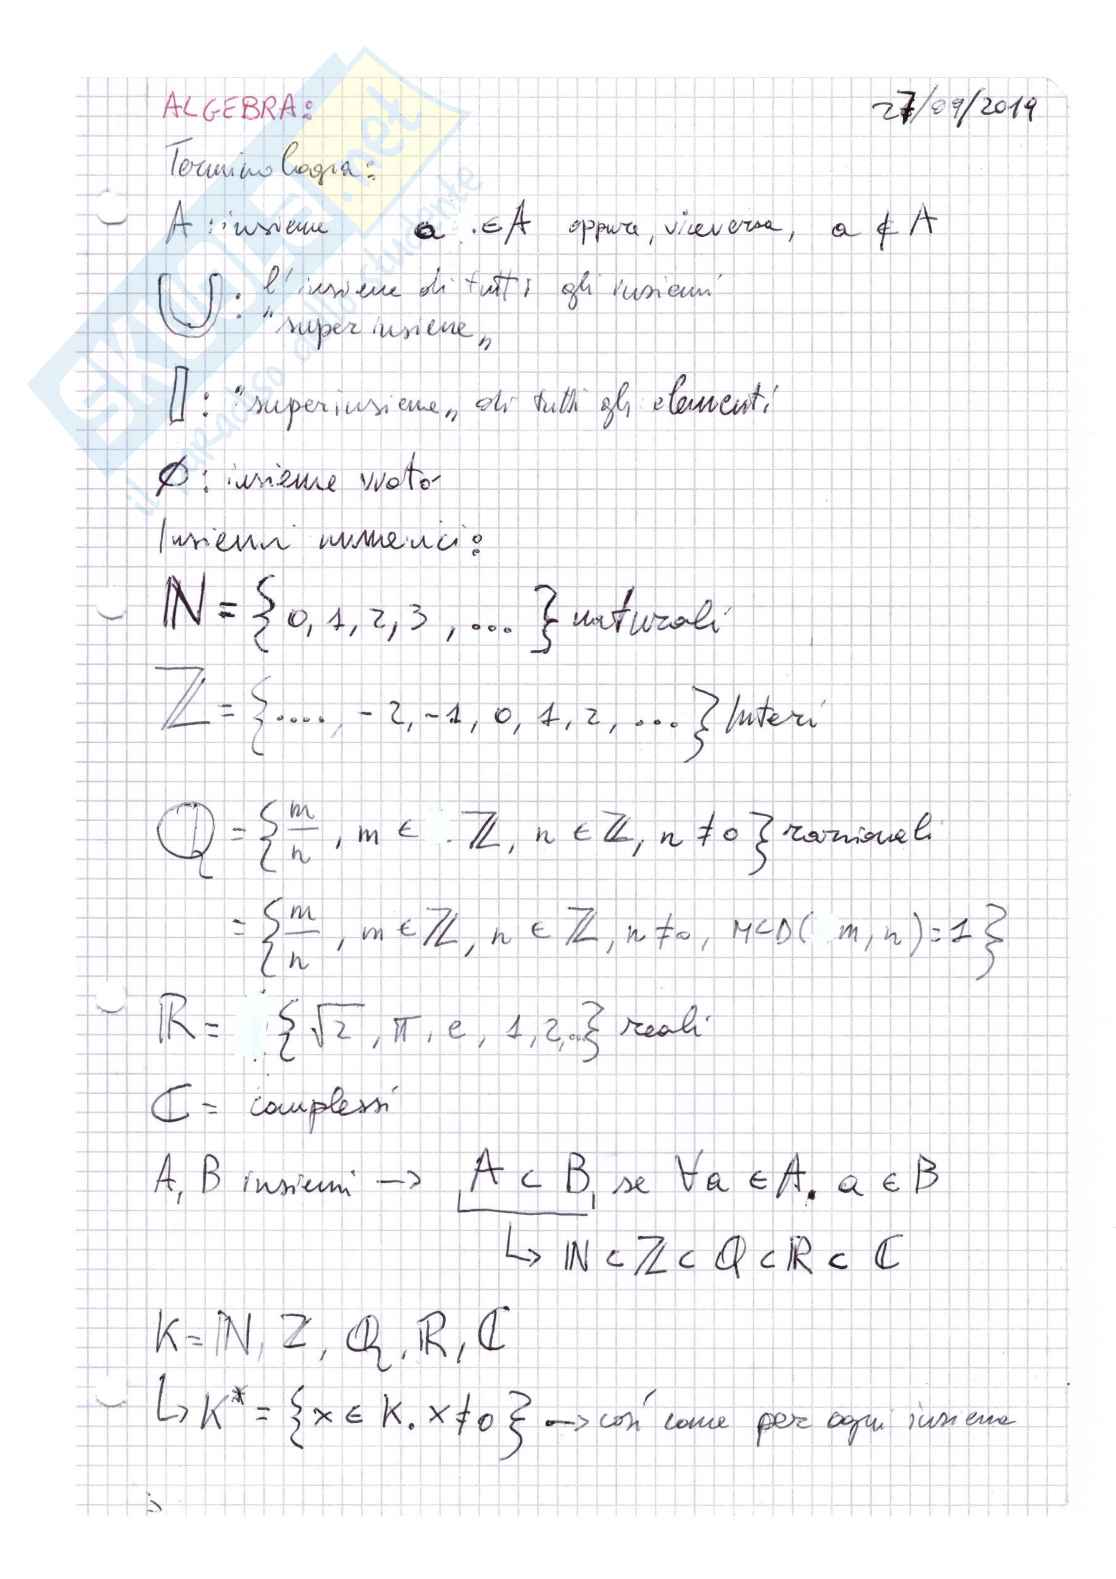 ALGEBRA: 27/09/2019
Terminologia:
A: insieme a ∈ A oppure, viceversa, a ∉ A
U: l'insieme di tutti gli insiemi
"superinsieme"
I: "superinsieme" di tutti gli elementi
∅: insieme vuoto
Insiemi numerici:
ℕ = {0, 1, 2, 3, ...} naturali
ℤ = {...., -2, -1, 0, 1, 2, ...} Interi
ℚ = {m/n, m ∈ ℤ, n ∈ ℤ, n ≠ 0} razionali
= {m/n, m ∈ ℤ, n ∈ ℤ, n ≠ 0, MCD(m, n) = 1}
ℝ = {√2, π, e, 1, 2, ..} reali
ℂ = complessi
A, B insiemi → A ⊂ B, se ∀a ∈ A. a ∈ B
↳ ℕ ⊂ ℤ ⊂ ℚ ⊂ ℝ ⊂ ℂ
K = ℕ, ℤ, ℚ, ℝ, ℂ
↳ K* = {x ∈ K. x ≠ 0} → così come per ogni insieme
SKUOLA.net
il paradiso dello studente